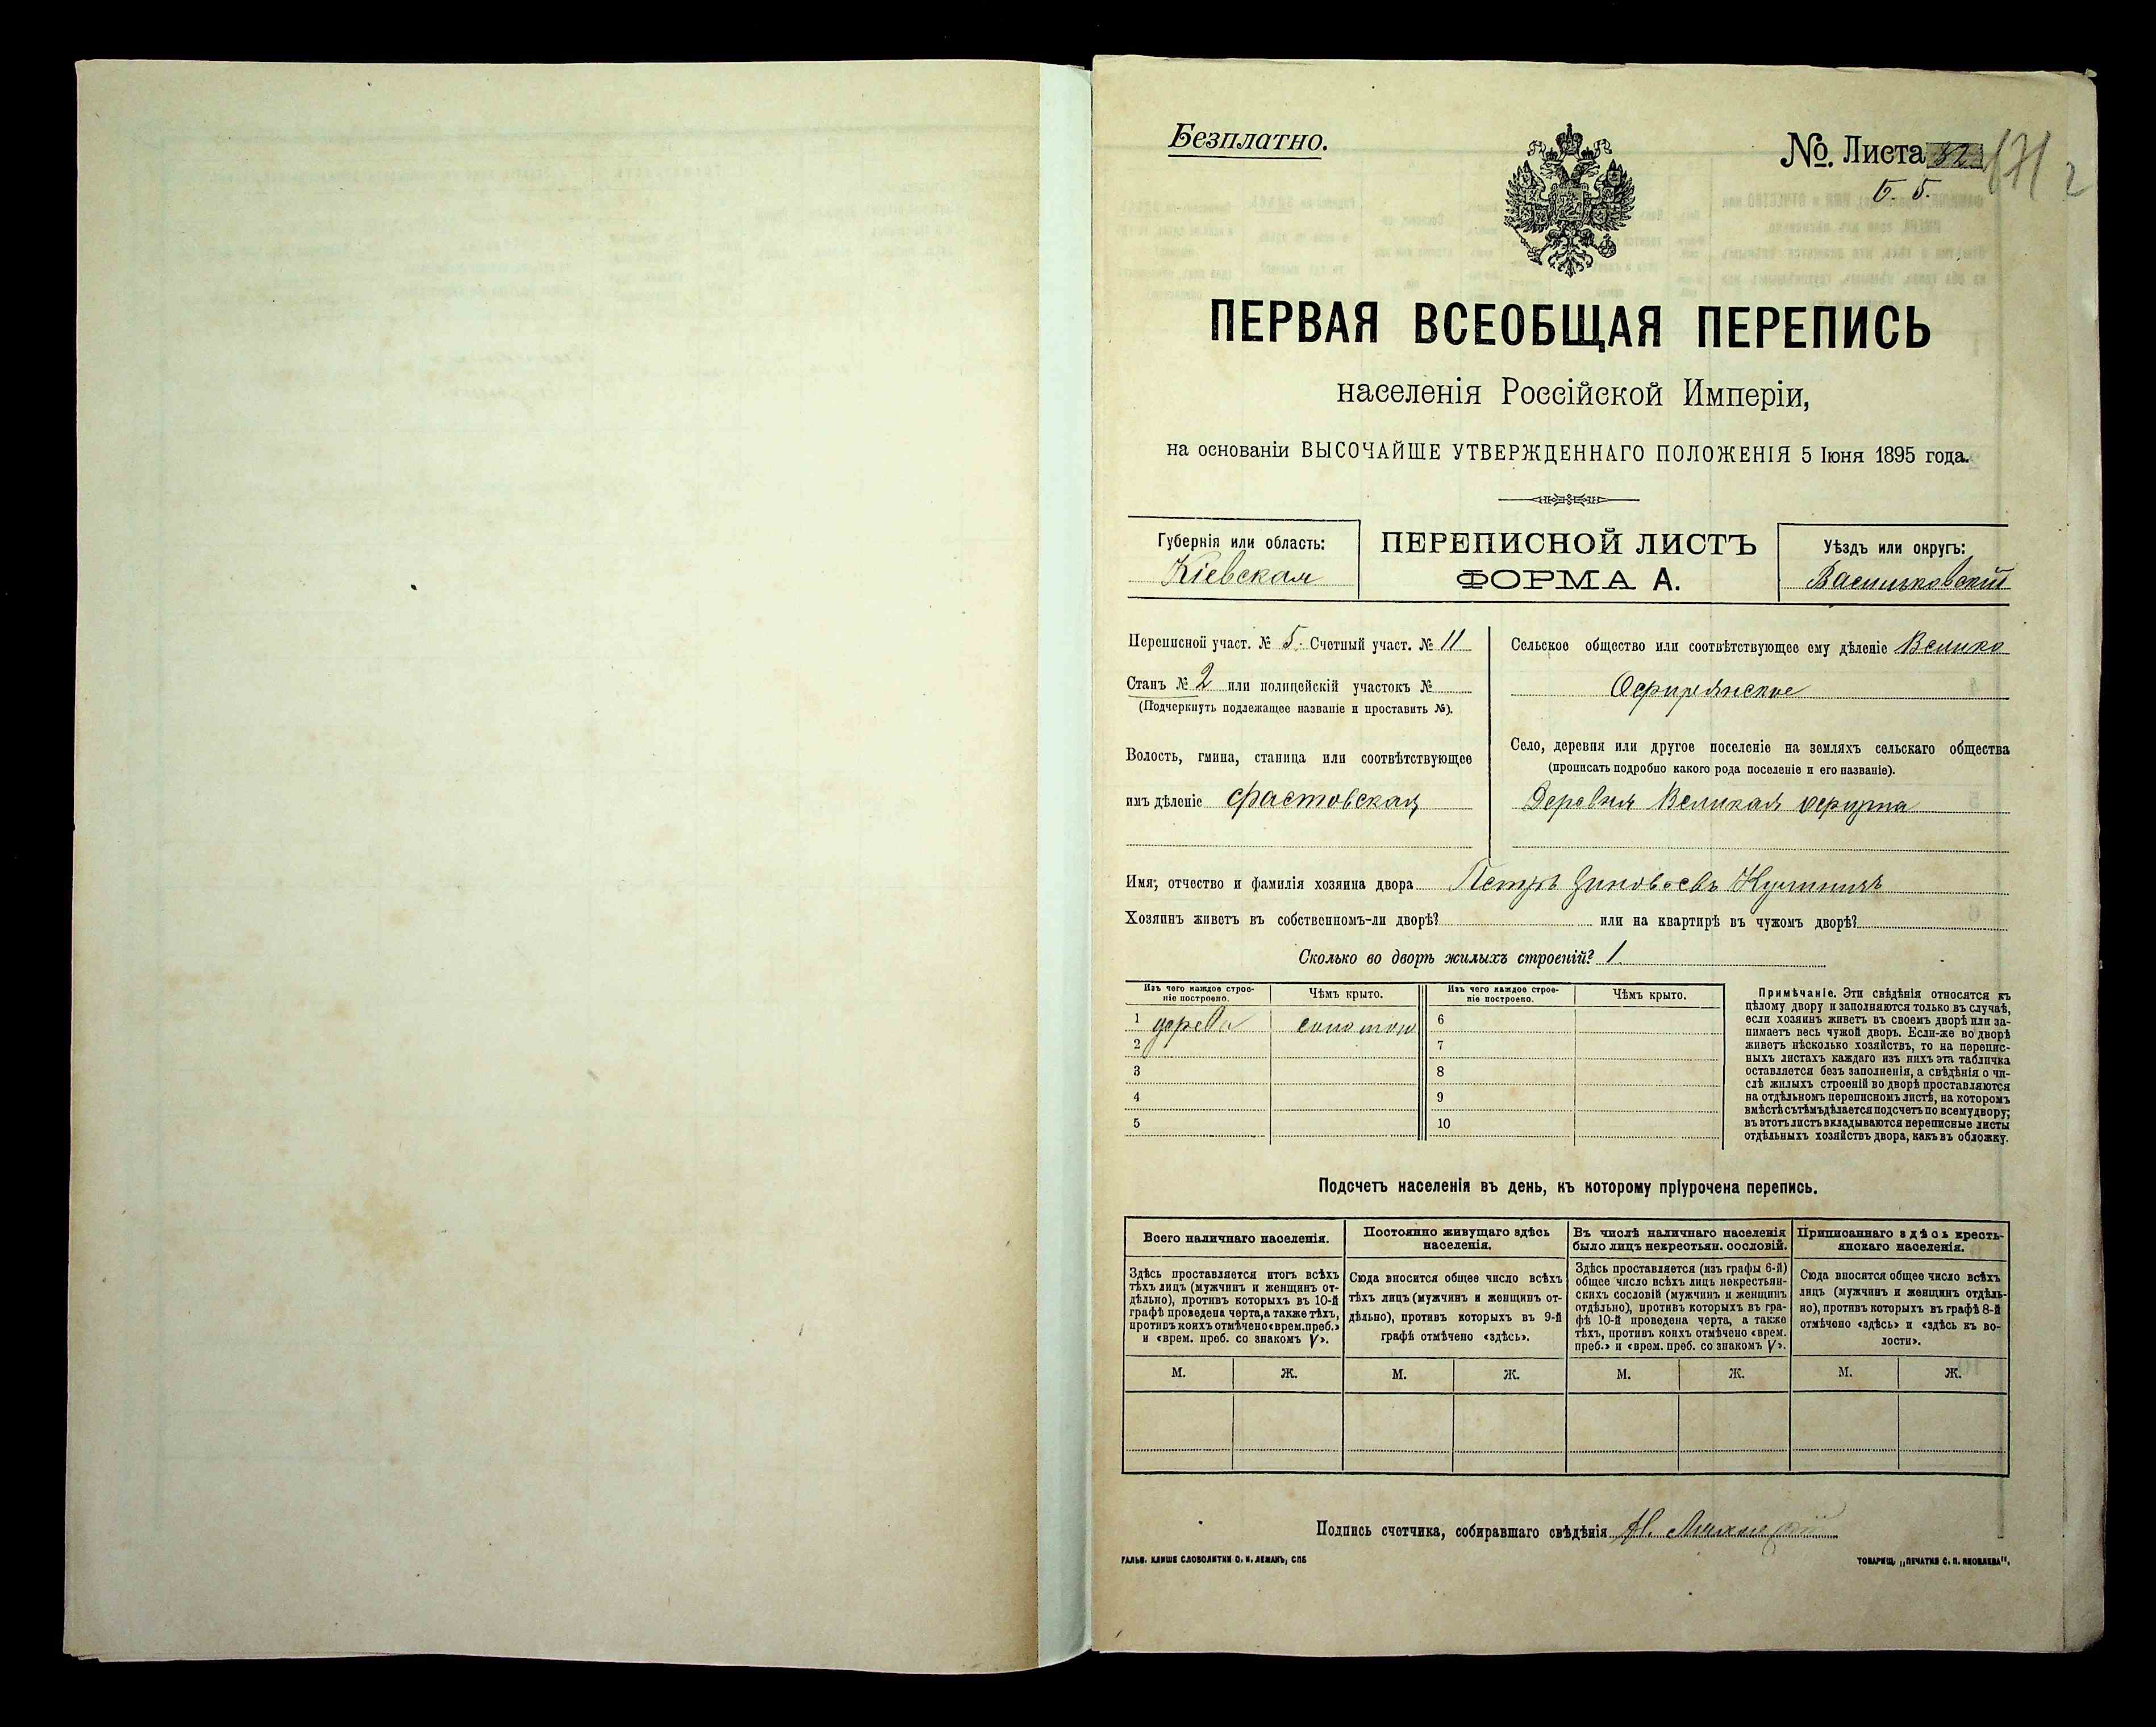 Безплатно.
№ Листа 52
5. 5.
171
2
ПЕРВАЯ ВСЕОБЩАЯ ПЕРЕПИСЬ
населенія Россійской Имперіи,
на основаніи ВЫСОЧАЙШЕ УТВЕРЖДЕННАГО ПОЛОЖЕНІЯ 5 Іюня 1895 года.
Губернія или область:
Кіевская
ПЕРЕПИСНОЙ ЛИСТЪ
ФОРМА А.
Уѣздъ или округъ:
Васильковскій
Переписной участ. № 5. Счетный участ. № 11
Станъ № 2 или полицейскій участокъ №
(Подчеркнуть подлежащее названіе и проставить №).
Волость, гмина, станица или соотвѣтствующее
имъ дѣленіе Фастовская
Сельское общество или соотвѣтствующее ему дѣленіе Велико
Офирнянское
Село, деревня или другое поселеніе на земляхъ сельскаго общества
(прописать подробно какого рода поселеніе и его названіе).
Деревня Великая офирна
Имя, отчество и фамилія хозяина двора Петръ Зиновьевъ
Хозяинъ живетъ въ собственномъ-ли дворѣ? или на квартирѣ въ чужомъ дворѣ?
Сколько во дворѣ жилыхъ строеній? 1
Изъ чего каждое строе-
ніе построено.
Чѣмъ крыто.
Изъ чего каждое строе-
ніе построено.
Чѣмъ крыто.
1 дерева соломою 6
2 7
3 8
4 9
5 10
Примѣчаніе. Эти свѣдѣнія относятся къ
цѣлому двору и заполняются только въ случаѣ,
если хозяинъ живетъ въ своемъ дворѣ или за-
нимаетъ весь чужой дворъ. Если-же во дворѣ
живетъ нѣсколько хозяйствъ, то на перепис-
ныхъ листахъ каждаго изъ нихъ эта табличка
оставляется безъ заполненія, а свѣдѣнія о чи-
слѣ жилыхъ строеній во дворѣ проставляются
на отдѣльномъ переписномъ листѣ, на которомъ
вмѣстѣ съ тѣмъ дѣлается подсчетъ по всему двору;
въ этотъ листъ вкладываются переписные листы
отдѣльныхъ хозяйствъ двора, какъ въ обложку.
Подсчетъ населенія въ день, къ которому пріурочена перепись.
Всего наличнаго населенія.
Здѣсь проставляется итогъ всѣхъ
тѣхъ лицъ (мужчинъ и женщинъ от-
дѣльно), противъ которыхъ въ 10-й
графѣ проведена черта, а также тѣхъ,
противъ коихъ отмѣчено «врем. преб.»
и «врем. преб. со знакомъ V».
Постоянно живущаго здѣсь
населенія.
Сюда вносится общее число всѣхъ
тѣхъ лицъ (мужчинъ и женщинъ от-
дѣльно), противъ которыхъ въ 9-й
графѣ отмѣчено «здѣсь».
Въ числѣ наличнаго населенія
было лицъ некрестьян. сословій.
Здѣсь проставляется (изъ графы 6-й)
общее число всѣхъ лицъ некрестьян-
скихъ сословій (мужчинъ и женщинъ
отдѣльно), противъ которыхъ въ гра-
фѣ 10-й проведена черта, а также
тѣхъ, противъ коихъ отмѣчено «врем.
преб.» и «врем. преб. со знакомъ V».
Приписаннаго здѣсь кресть-
янскаго населенія.
Сюда вносится общее число всѣхъ
лицъ (мужчинъ и женщинъ отдѣль-
но), противъ которыхъ въ графѣ 8-й
отмѣчено «здѣсь» и «здѣсь къ во-
лости».
М. Ж. М. Ж. М. Ж. М. Ж.
Подпись счетчика, собиравшаго свѣдѣнія
ГАЛЬВ. КЛИШЕ СЛОВОЛИТНИ О. И. ЛЕМАНЪ, СПБ
ТОВАРИЩ. „ПЕЧАТНЯ С. П. ЯКОВЛЕВА",